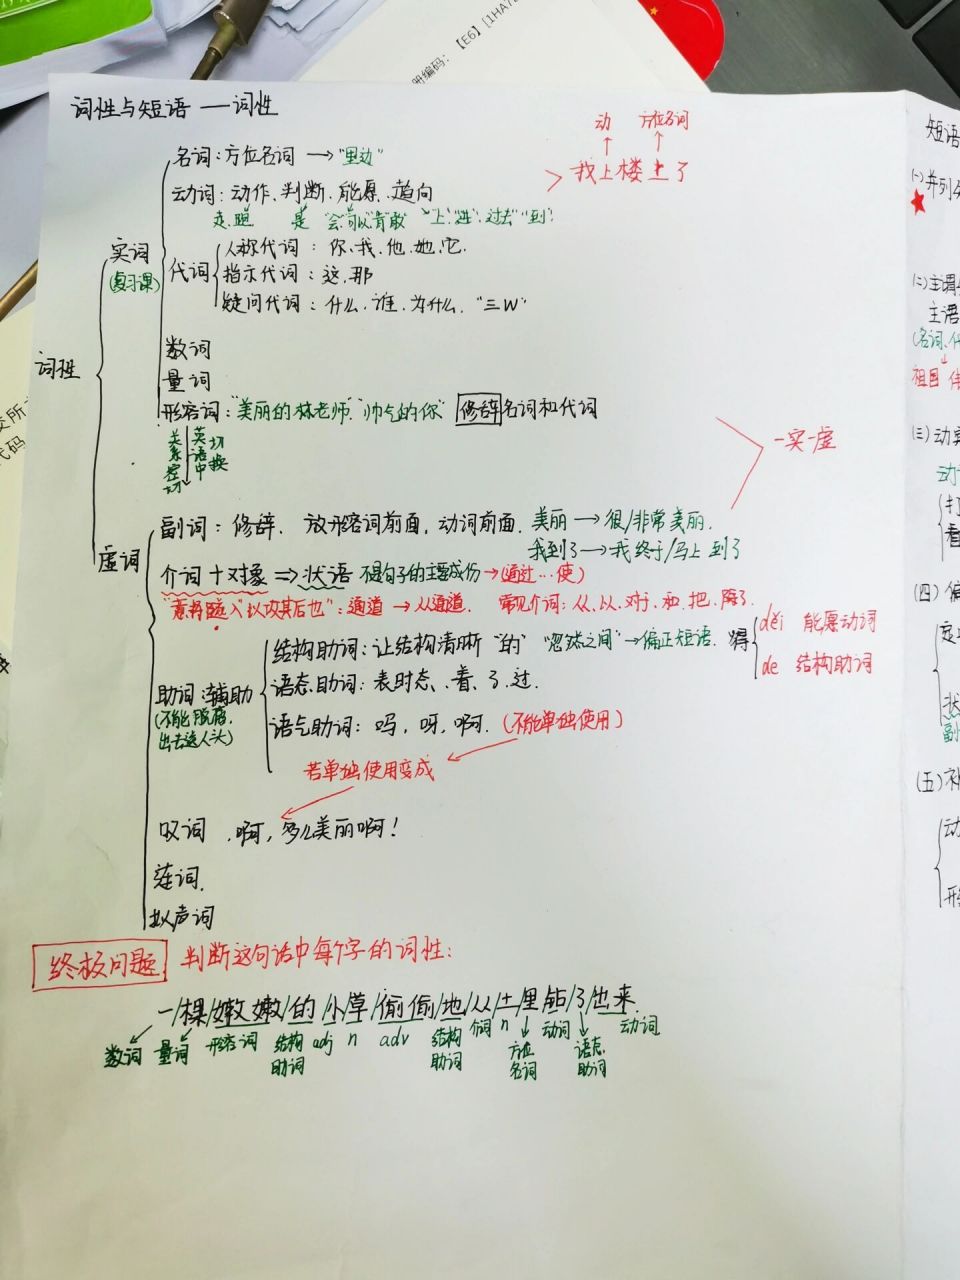 册编码：【E6】[1HA7
词性与短语 — 词性
动 方位名词
我上楼上了
名词：方位名词 → "里边"
动词：动作、判断、能愿、趋向
走.跑 是 "会"可以"肯"敢" "上".进".过去"到"
实词
(复习课)
代词
人称代词：你、我、他、她、它.
指示代词：这、那
疑问代词：什么、谁、为什么、"三W"
词性
数词
量词
形容词："美丽的林老师"."帅气的你" 修辞名词和代词
英语中
切换
一实一虚
虚词
副词：修辞、放形容词前面，动词前面. 美丽 → 很/非常美丽.
我到了 → 我终于/马上到了
介词＋对象 ⇒ 状语 不是句子的主要成份 → (通过…使)
以攻其后也"：通道 → 从通道. 常见介词：从、以、对于、和、把、除了.
助词：辅助
(不能脱离，
结构助词：让结构清晰 "的" "忽然之间" → 偏正短语. 得
děi 能愿动词
de 结构助词
语态助词：表时态、着、了、过.
语气助词：吗，呀，啊. (不能单独使用)
若单独使用变成
叹词 .啊，多么美丽啊！
连词.
拟声词
终极问题 判断这句话中每个字的词性：
一/棵/嫩嫩/的/小/草/偷偷/地/从/土/里/钻/了/出来.
数词 量词 形容词 结构助词 adj n adv 结构助词 介词 n 方位名词 动词 语态助词 动词
短语
(一)并列
(二)主谓
主语
(名词、代
祖国
(三)动宾
动
打
看
(四)偏
定
状
副
(五)补
动
形